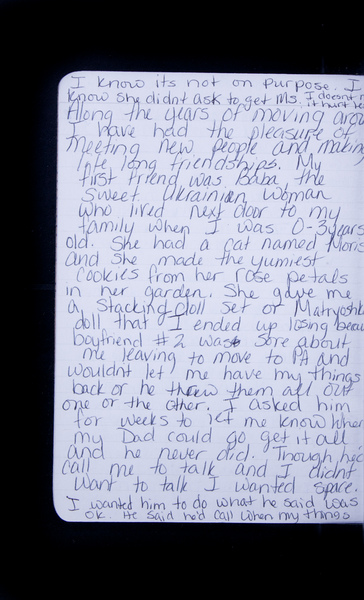 I know its not on purpose. I
know she didnt ask to get MS. I doesnt
it hurt
Along the years of moving
I have had the pleasure of
meeting new people and making
life long friendships. My
first friend was Baba the
sweet Ukrainian woman
who lived next door to my
family when I was 0-3 years
old. She had a cat named Moris
and she made the yumiest
cookies from her rose petals
in her garden. She gave me
a Stacking doll set or Matryoshka
doll that I ended up losing
boyfriend #2 was sore about
me leaving to move to PA and
wouldnt let me have my things
back or he threw them all out
one or the other. I asked him
for weeks to let me know when
my Dad could go get it all
and he never did. Though he'd
call me to talk and I didnt
want to talk I wanted space.
I wanted him to do what he said was
ok. He said he'd call when my things